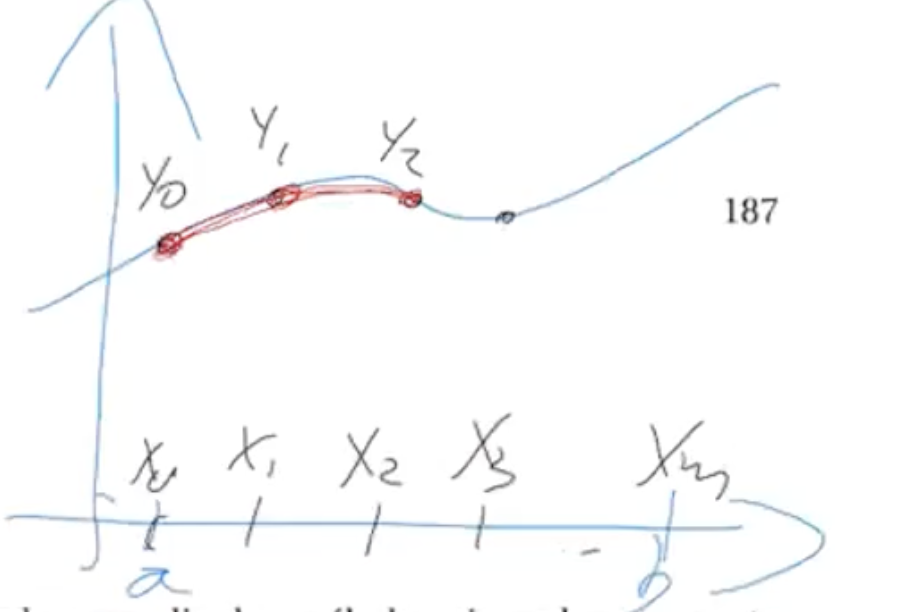 Y₁ Y₂
Y₀
187
X₀ X₁ X₂ X₃ Xₘ
a b